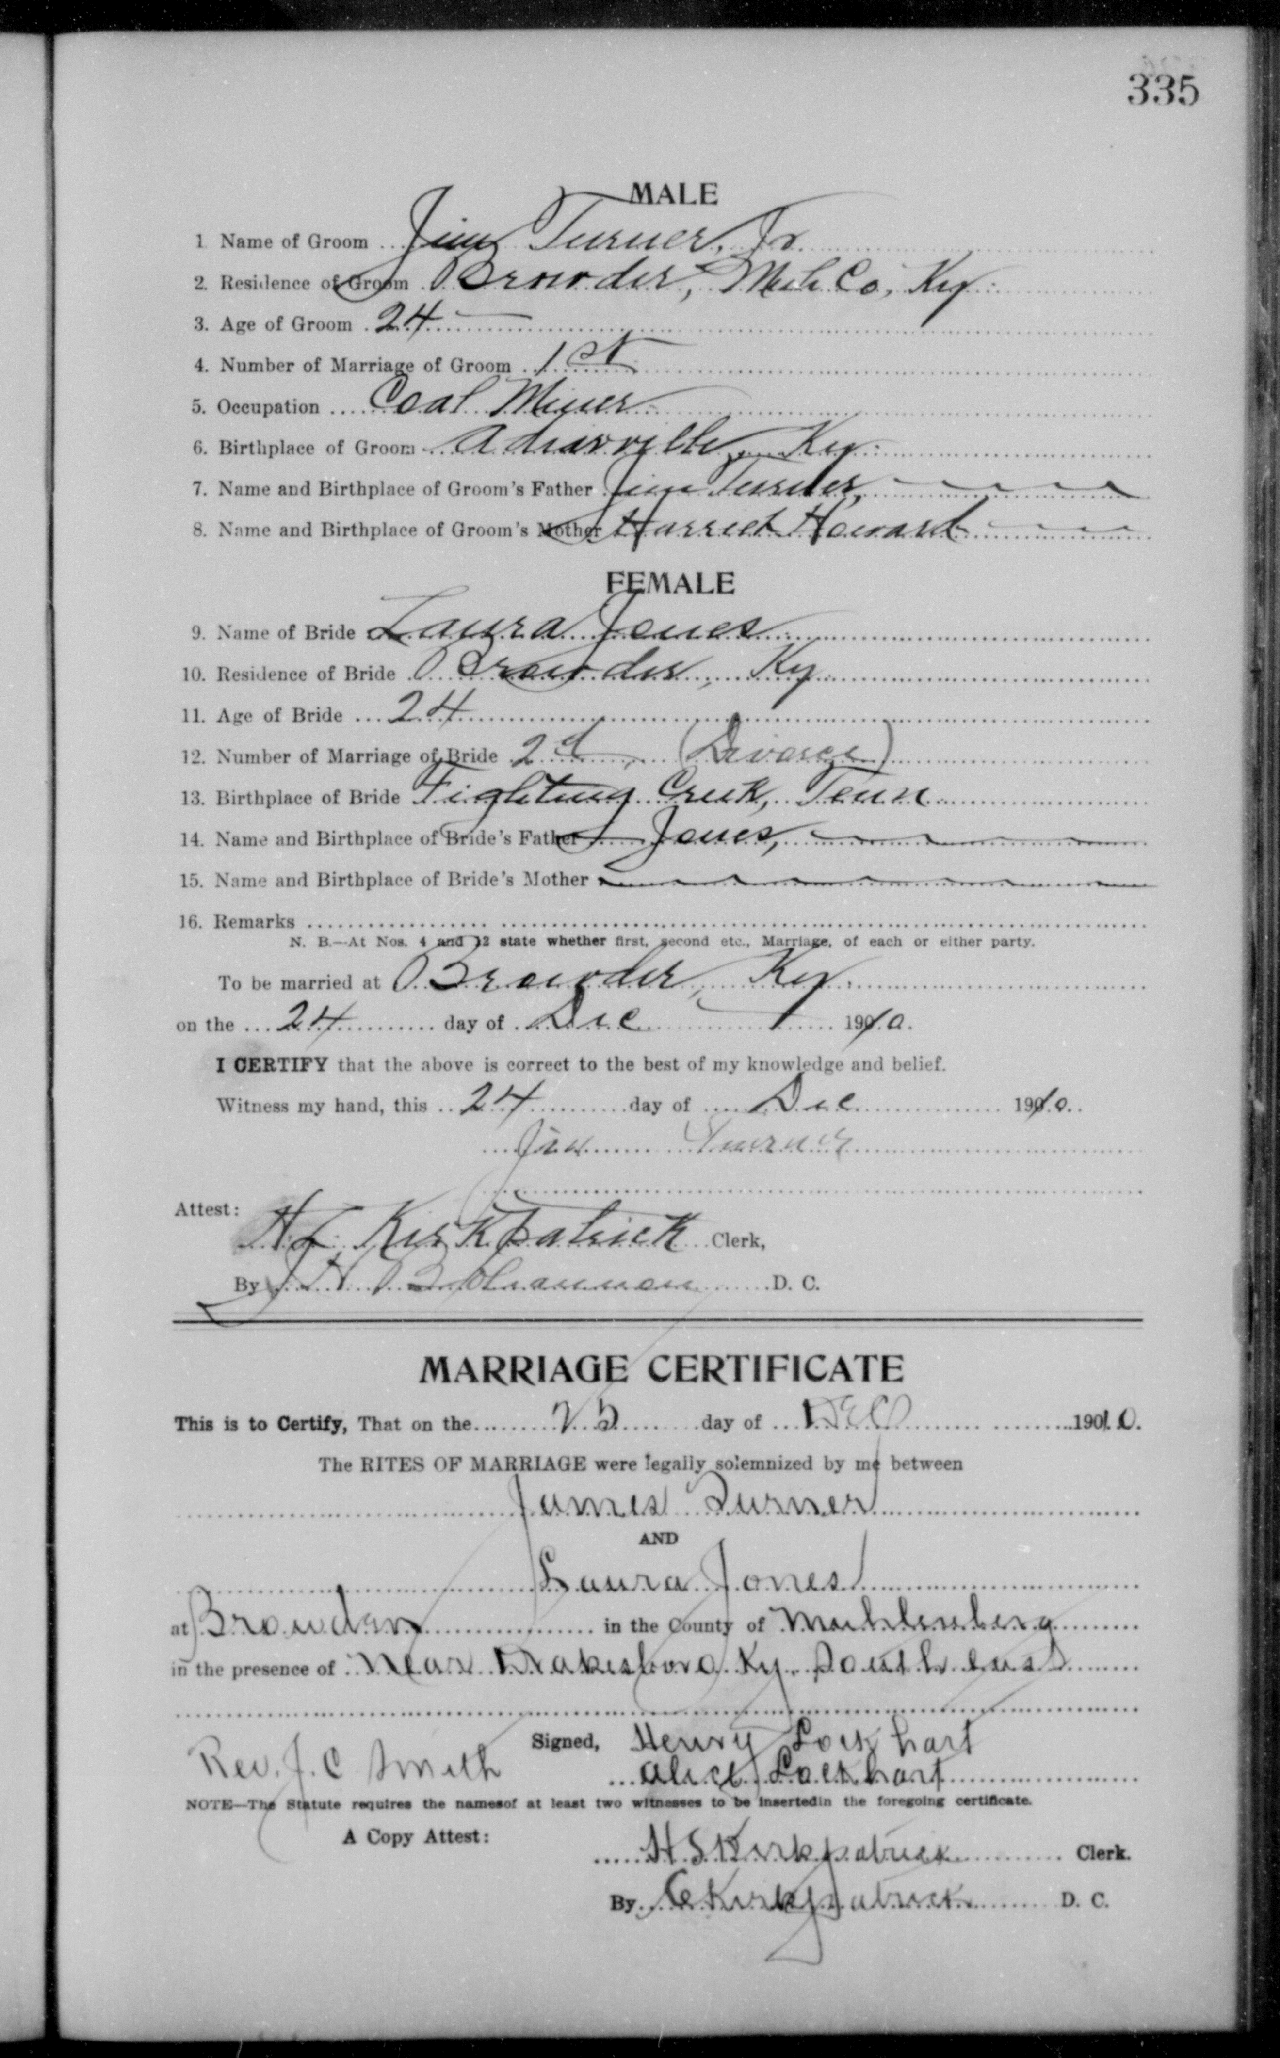 335
MALE
1 Name of Groom Jim Turner, Jr
2. Residence of Groom Browder, Muh Co, Ky.
3. Age of Groom 24
4. Number of Marriage of Groom 1st
5. Occupation Coal Miner
6. Birthplace of Groom Adairville, Ky.
7. Name and Birthplace of Groom's Father Jim Turner,
8. Name and Birthplace of Groom's Mother Harriet Howard
FEMALE
9. Name of Bride Laura Jones
10. Residence of Bride Browder, Ky
11. Age of Bride 24
12. Number of Marriage of Bride 2d, (Divorce)
13. Birthplace of Bride Fighting Creek, Tenn
14. Name and Birthplace of Bride's Father Jones,
15. Name and Birthplace of Bride's Mother
16. Remarks
N. B.—At Nos. 4 and 12 state whether first, second etc., Marriage, of each or either party.
To be married at Browder, Ky.
on the 24 day of Dec 1910.
I CERTIFY that the above is correct to the best of my knowledge and belief.
Witness my hand, this 24 day of Dec 1910.
Jim Turner
Attest:
Kirkpatrick Clerk,
By J H Bohannon D. C.
MARRIAGE CERTIFICATE
This is to Certify, That on the 25 day of DEC 1910.
The RITES OF MARRIAGE were legally solemnized by me between
James Turner
AND
Laura Jones
at Browder in the County of Muhlenberg
in the presence of Near Drakesboro Ky. South east
Signed, Henry Lockhart
Rev. J. C Smith Alice Lockhart
NOTE—The Statute requires the namesof at least two witnesses to be insertedin the foregoing certificate.
A Copy Attest:
Kirkpatrick Clerk.
By C Kirkpatrick D. C.